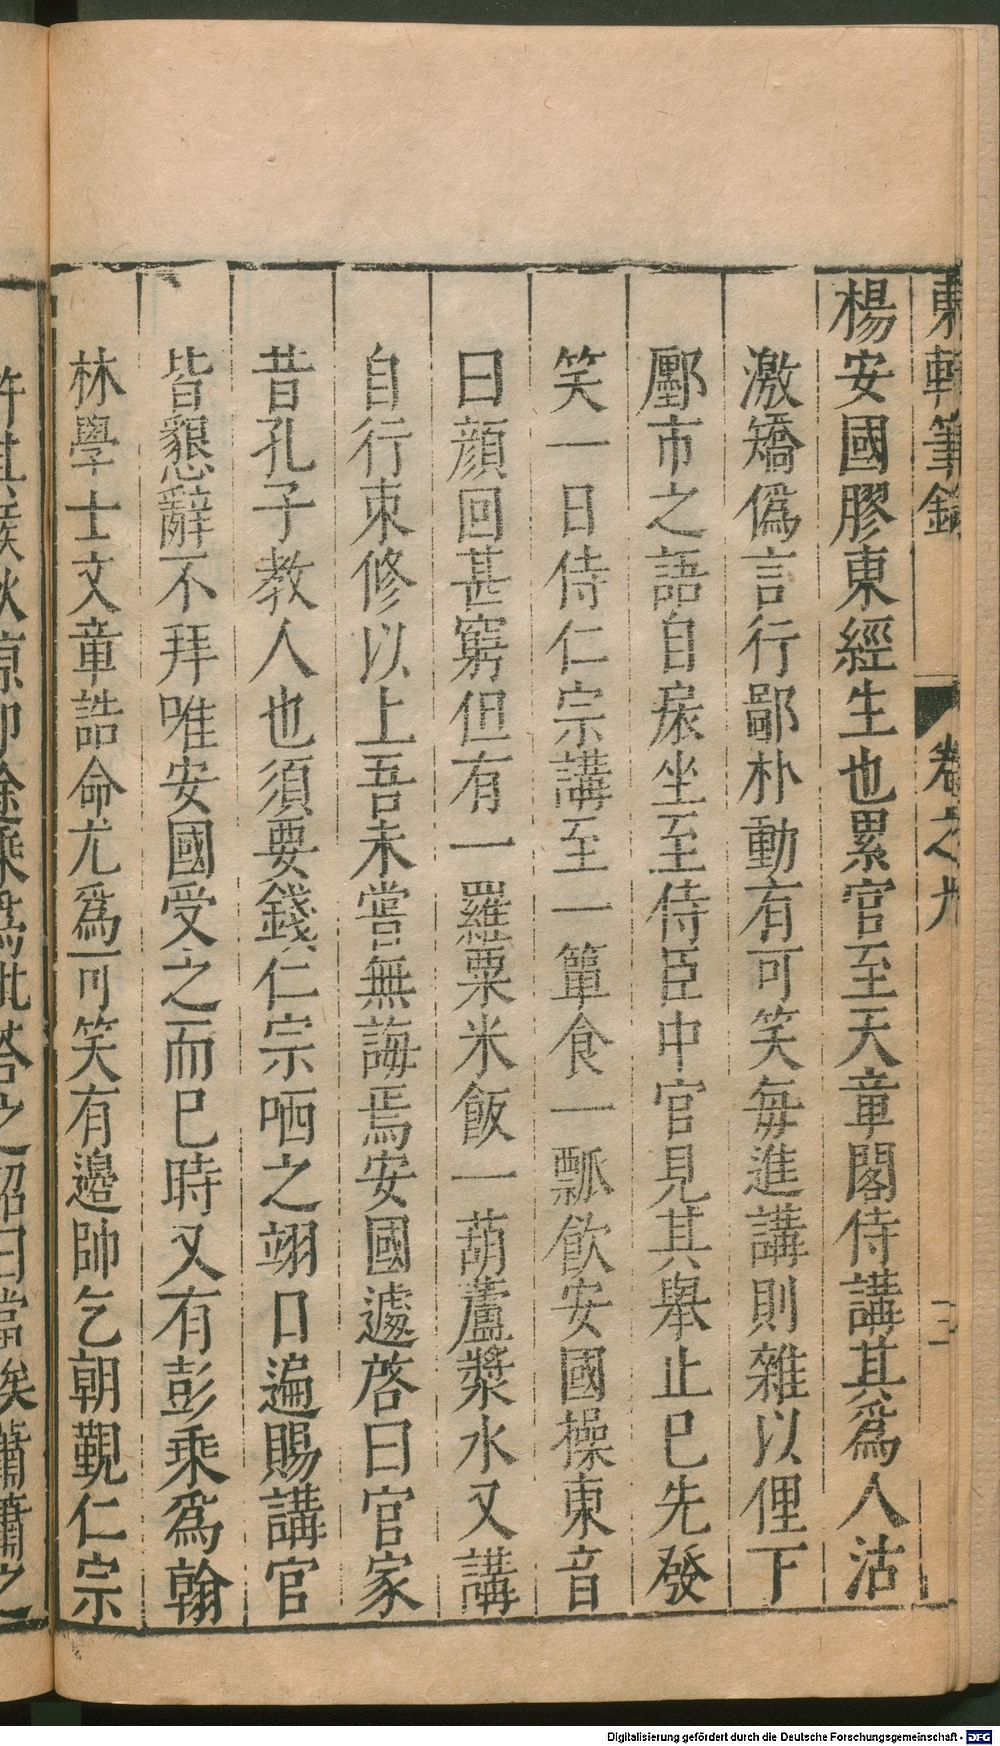 東軒筆錄 卷之九 三
楊安國膠東經生也累官至天章閣侍講其爲人沽
激矯僞言行鄙朴動有可笑每進講則雜以俚下
鄽市之語自扆坐至侍臣中官見其舉止已先發
笑一日侍仁宗講至一簞食一瓢飮安國操東音
曰顔回甚窮但有一羅粟米飯一葫蘆漿水又講
自行束修以上吾未嘗無誨焉安國遽啓曰官家
昔孔子教人也須要錢仁宗哂之翊日遍賜講官
皆懇辭不拜唯安國受之而已時又有彭乘爲翰
林學士文章誥命尤爲可笑有邊帥乞朝覲仁宗
許其候秋凉卽途乘爲批答之詔曰當俟蕭蕭之
Digitalisierung gefördert durch die Deutsche Forschungsgemeinschaft - DFG